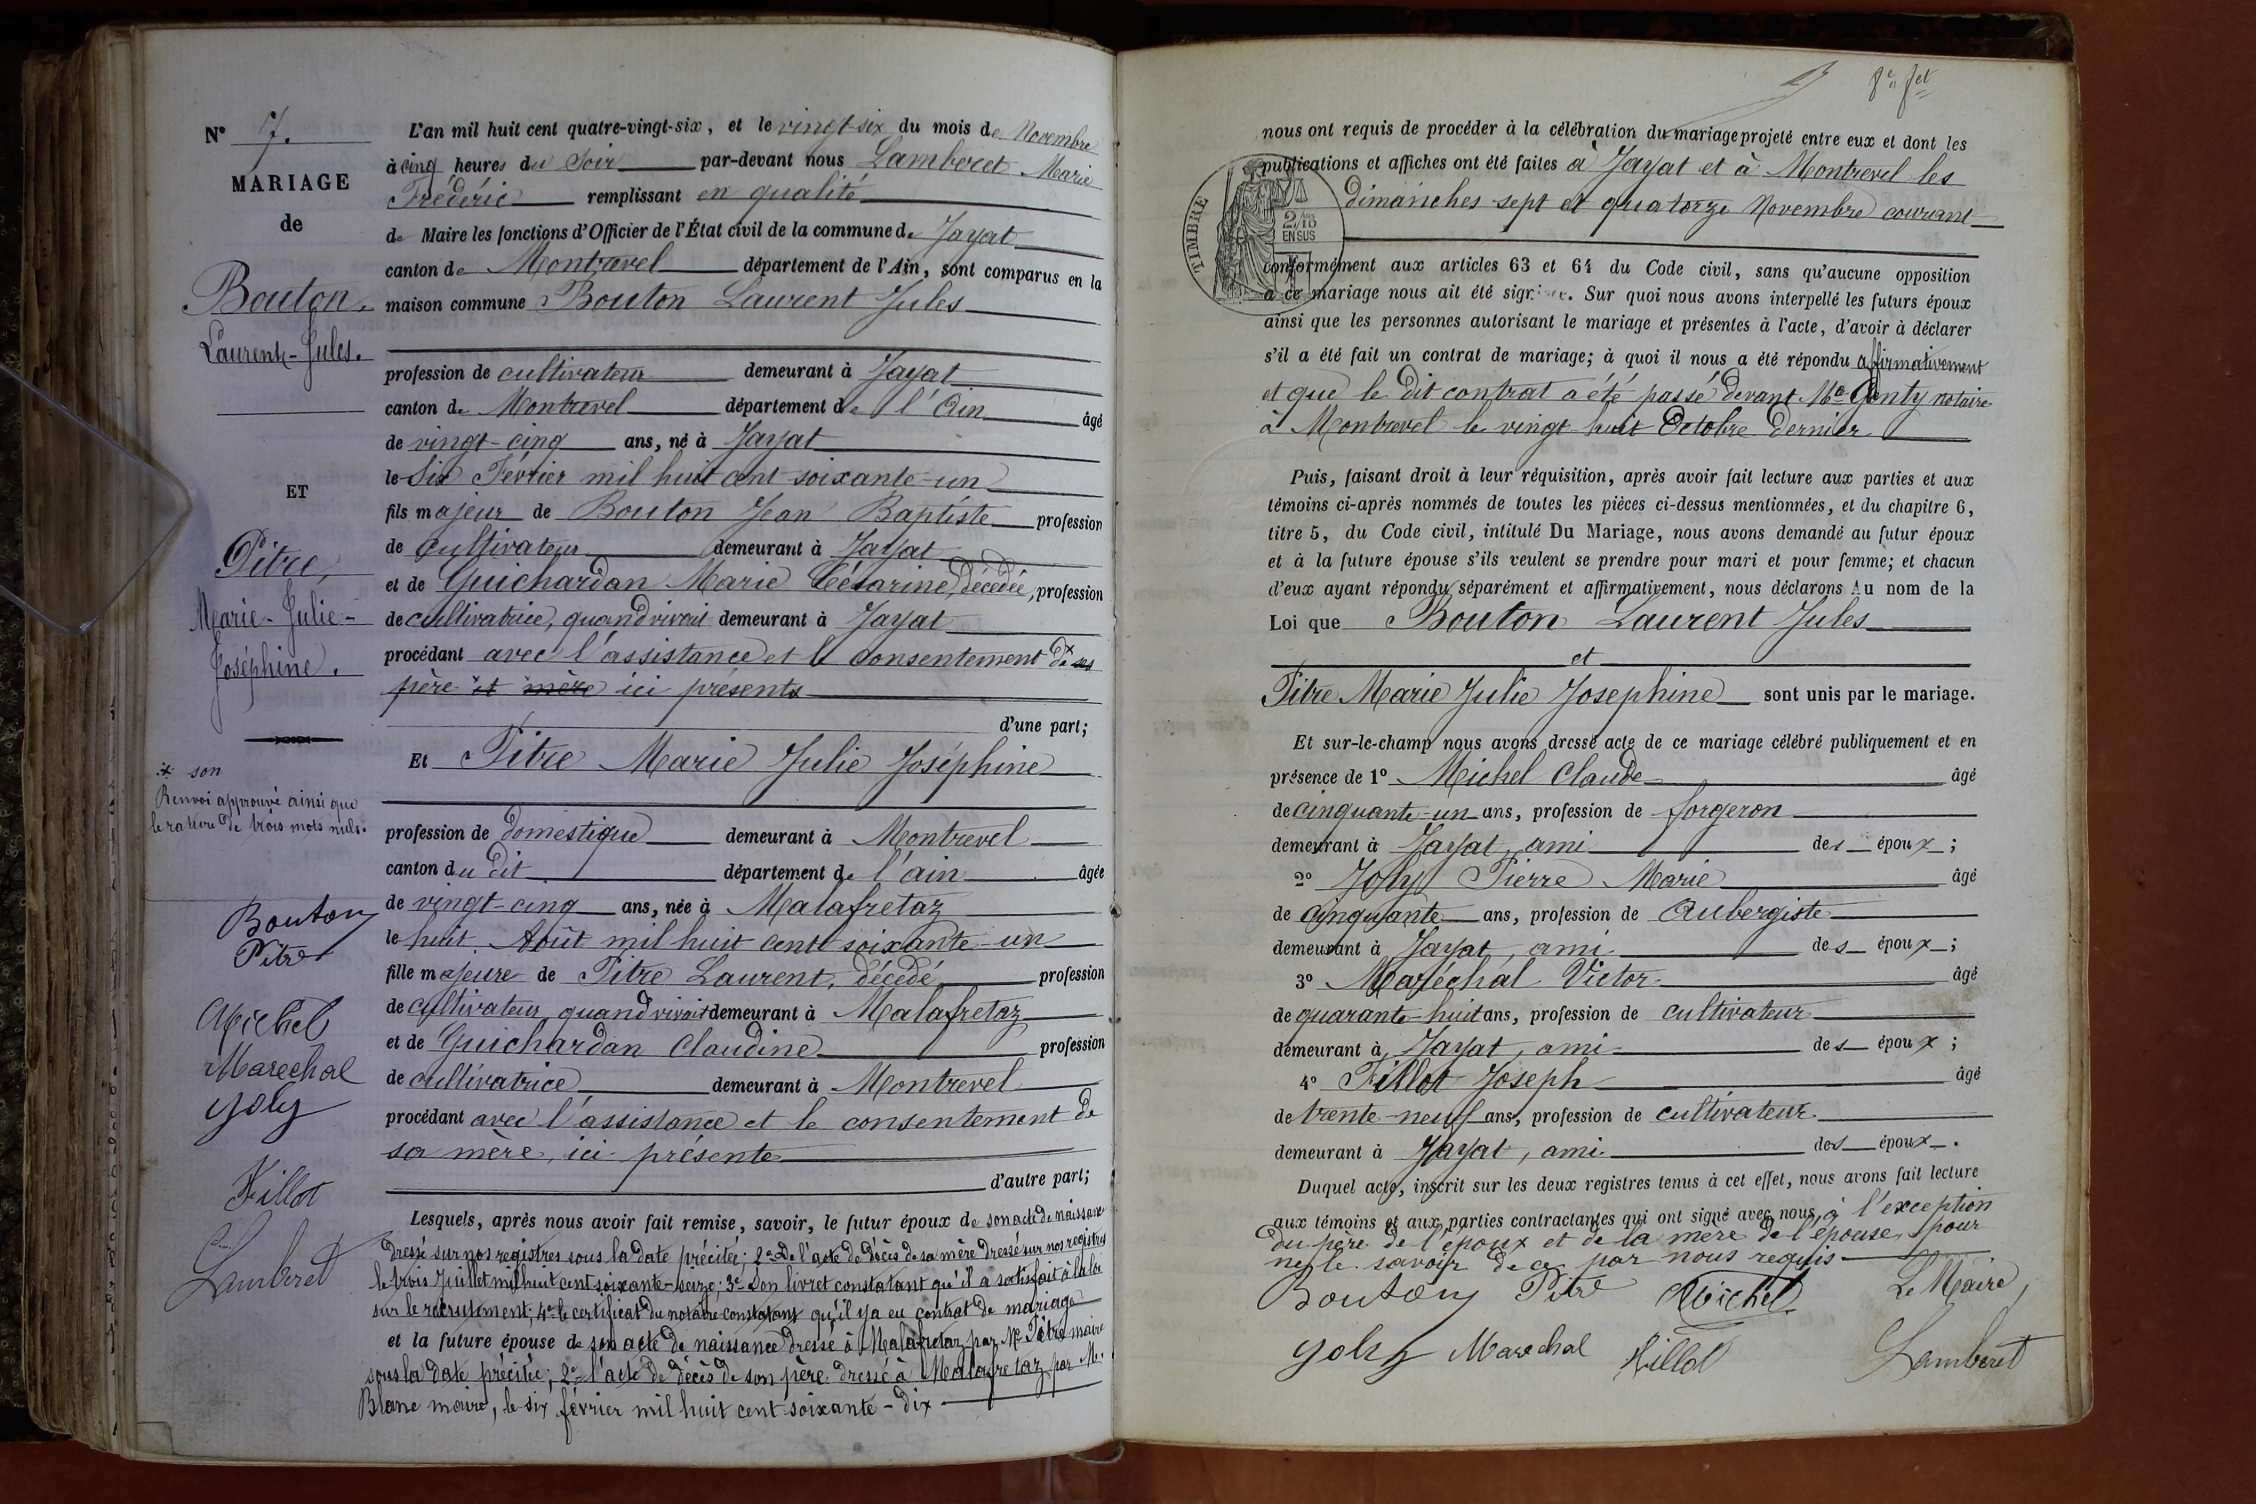 N° 7.
MARIAGE
de
Bouton,
Laurent-Jules.
ET
Pitre,
Marie-Julie-
Joséphine.
x son
Renvoi approuvé ainsi que
la rature de trois mots nuls.
Bouton
Pitre
Michel
Marechal
Joly
Fillot
Lamberet
L'an mil huit cent quatre-vingt-six, et le vingt-six du mois de Novembre
à cinq heures du Soir par-devant nous Lamberet Marie
Frédéric remplissant en qualité
de Maire les fonctions d'Officier de l'État civil de la commune de Jayat
canton de Montrevel département de l'Ain, sont comparus en la
maison commune Bouton Laurent Jules
profession de cultivateur demeurant à Jayat
canton de Montrevel département de l'Ain âgé
de vingt-cinq ans, né à Jayat
le Six Février mil huit cent soixante-un
fils majeur de Bouton Jean Baptiste profession
de cultivateur demeurant à Jayat
et de Guichardan Marie Césarine, décédée, profession
de cultivatrice, quand vivait demeurant à Jayat
procédant avec l'assistance et le consentement de x ses
père et mère ici présents
d'une part;
Et Pitre Marie Julie Joséphine
profession de domestique demeurant à Montrevel
canton du dit département de l'ain âgée
de vingt-cinq ans, née à Malafretaz
le huit Août mil huit cent soixante-un
fille majeure de Pitre Laurent, décédé profession
de cultivateur, quand vivait demeurant à Malafretaz
et de Guichardan Claudine profession
de cultivatrice demeurant à Montrevel
procédant avec l'assistance et le consentement de
sa mère, ici présente
d'autre part;
Lesquels, après nous avoir fait remise, savoir, le futur époux de son acte de naissance
dressé sur nos registres sous la date précitée; 2° De l'acte de décès de sa mère dressé sur nos registres
le trois Juillet mil huit cent soixante-seize; 3° Son livret constatant qu'il a satisfait à la loi
sur le recrutement; 4° le certificat du notaire constatant qu'il y a eu contrat de mariage
et la future épouse de son acte de naissance dressé à Malafretaz par Mr Pitre maire
sous la date précitée; 2° l'acte de décès de son père dressé à Malafretaz par M.
Blanc maire, le six février mil huit cent soixante-dix
nous ont requis de procéder à la célébration du mariage projeté entre eux et dont les
publications et affiches ont été faites à Jayat et à Montrevel les
dimanches sept et quatorze Novembre courant
TIMBRE
2/10
EN SUS
conformément aux articles 63 et 64 du Code civil, sans qu'aucune opposition
à ce mariage nous ait été signifiée. Sur quoi nous avons interpellé les futurs époux
ainsi que les personnes autorisant le mariage et présentes à l'acte, d'avoir à déclarer
s'il a été fait un contrat de mariage; à quoi il nous a été répondu affirmativement
et que le dit contrat a été passé devant Me Gonty notaire
à Montrevel le vingt huit Octobre dernier
Puis, faisant droit à leur réquisition, après avoir fait lecture aux parties et aux
témoins ci-après nommés de toutes les pièces ci-dessus mentionnées, et du chapitre 6,
titre 5, du Code civil, intitulé Du Mariage, nous avons demandé au futur époux
et à la future épouse s'ils veulent se prendre pour mari et pour femme; et chacun
d'eux ayant répondu séparément et affirmativement, nous déclarons Au nom de la
Loi que Bouton Laurent Jules
et
Pitre Marie Julie Josephine sont unis par le mariage.
Et sur-le-champ nous avons dressé acte de ce mariage célébré publiquement et en
présence de 1° Michel Claude âgé
de cinquante-un ans, profession de forgeron
demeurant à Jayat, ami des époux;
2° Joly Pierre Marie âgé
de cinquante ans, profession de Aubergiste
demeurant à Jayat, ami des époux;
3° Maréchal Victor âgé
de quarante-huit ans, profession de cultivateur
demeurant à Jayat, ami des époux;
4° Fillot Joseph âgé
de trente-neuf ans, profession de cultivateur
demeurant à Jayat, ami des époux.
Duquel acte, inscrit sur les deux registres tenus à cet effet, nous avons fait lecture
aux témoins et aux parties contractantes qui ont signé avec nous, à l'exception
du père de l'époux et de la mère de l'épouse, pour
ne le savoir de ce par nous requis
Bouton Pitre Michel Le Maire,
Joly Marechal Fillot Lamberet